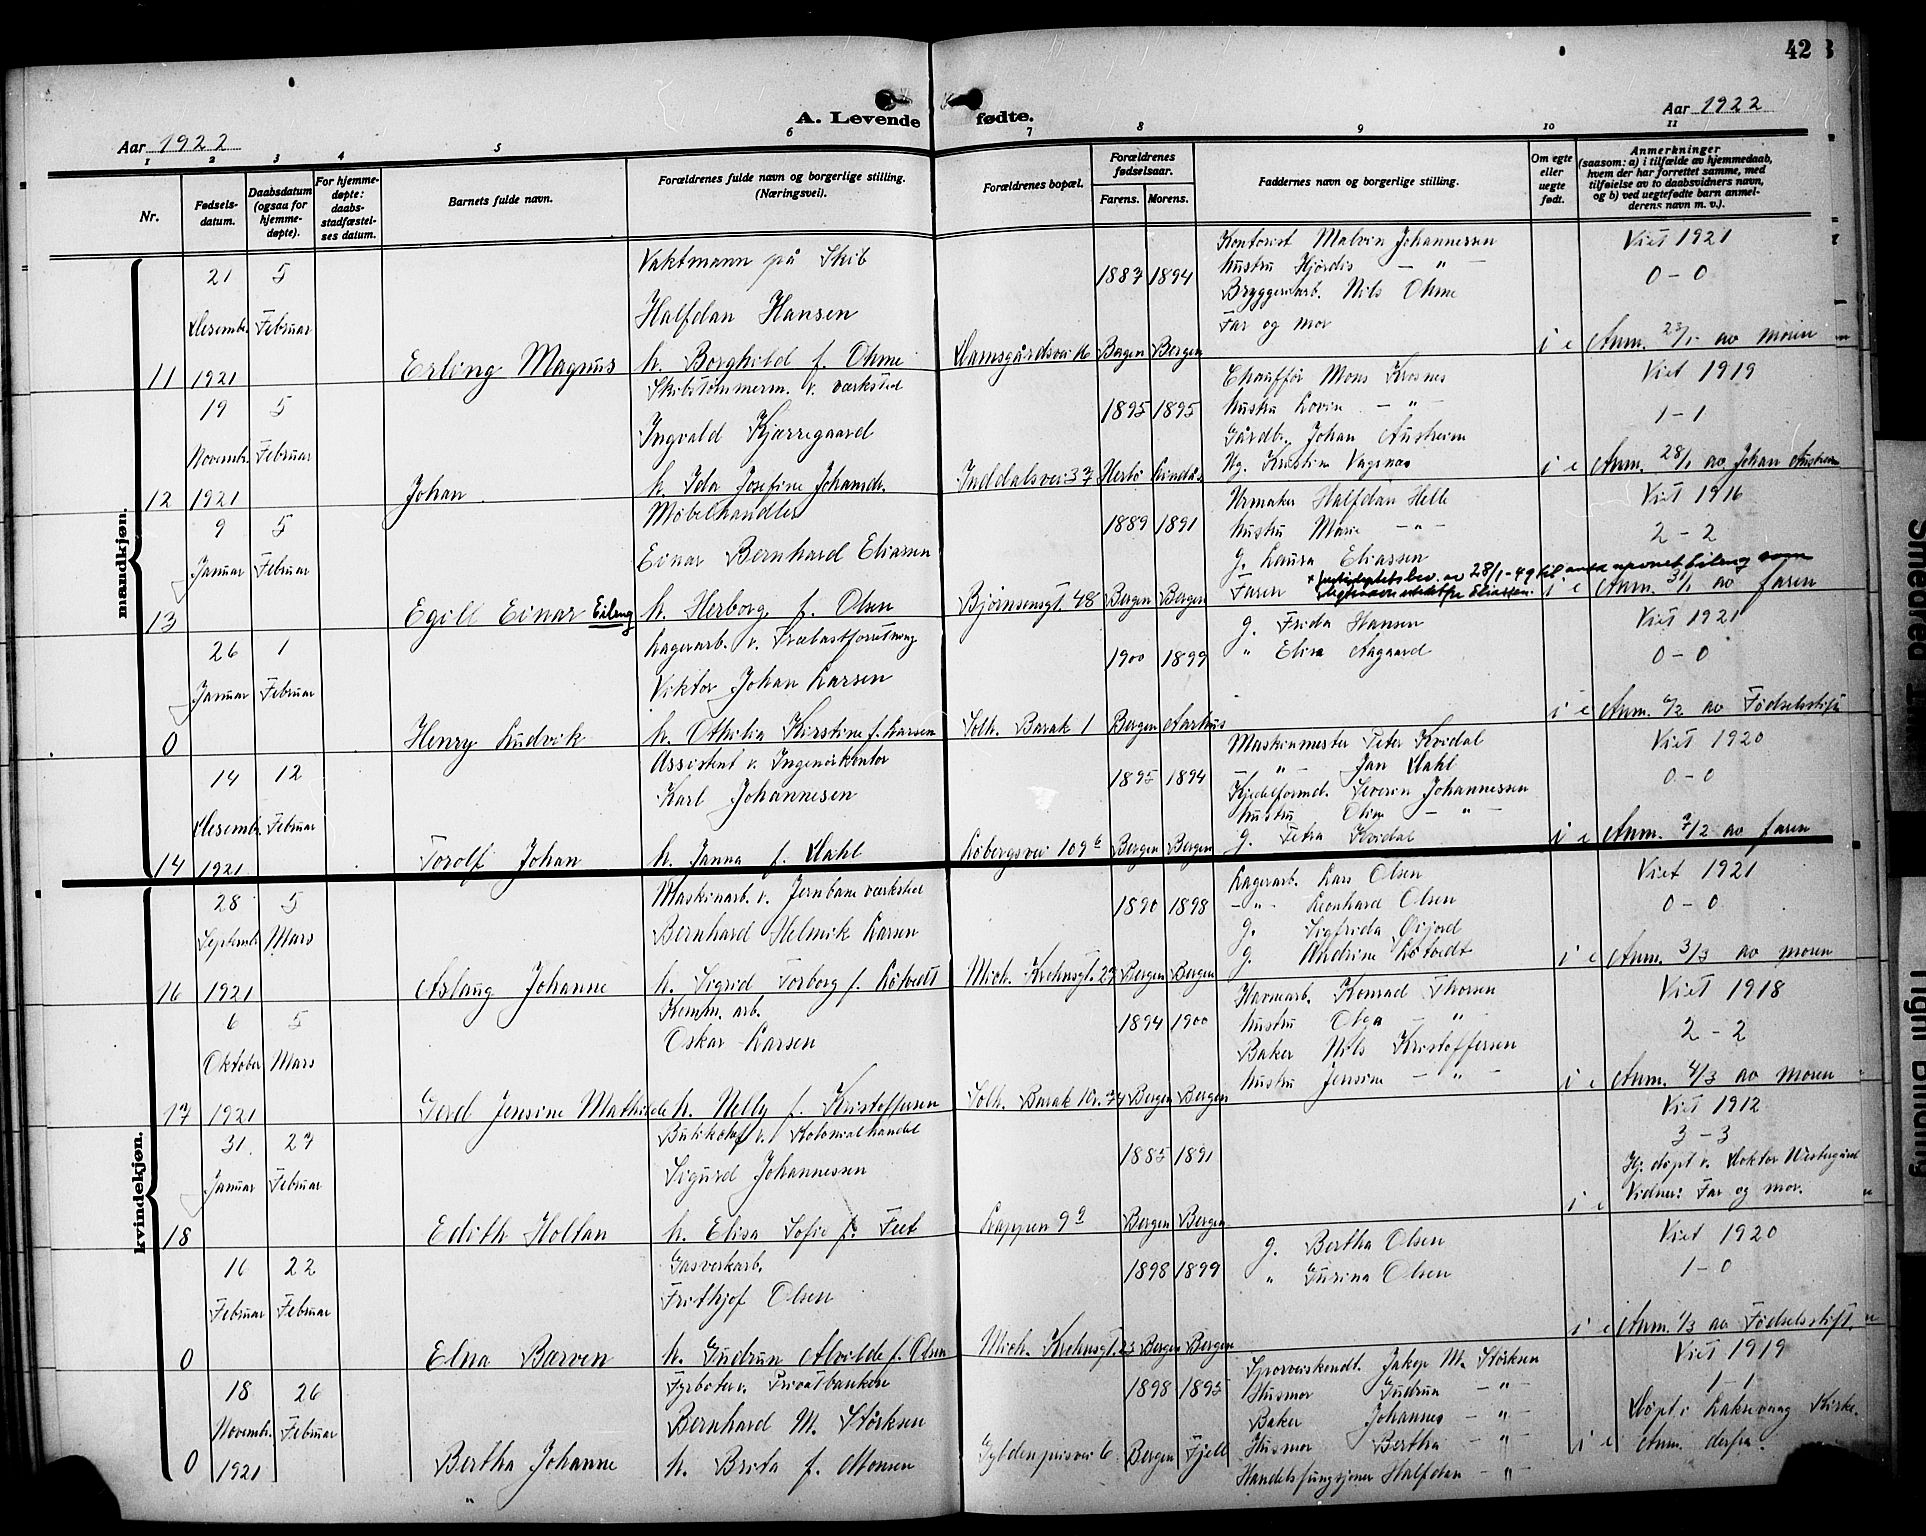 42
A. Levende fødte.
Aar 1922
Aar 1922
1 2 3 4 5 6 7 8 9 10 11
Nr.
Fødsels-
datum.
Daabsdatum
(ogsaa for
hjemme-
døpte).
For hjemme-
døpte:
daabs-
stadfæstel-
ses datum.
Barnets fulde navn.
Forældrenes fulde navn og borgerlige stilling.
(Næringsvei).
Forældrenes bopæl.
Forældrenes
fødselsaar.
Farens. Morens.
Faddernes navn og borgerlige stilling.
Om egte
eller
uegte
født.
Anmerkninger
(saasom: a) i tilfælde av hjemmedaab,
hvem der har forrettet samme, med
tilføielse av to daabsvidners navn,
og b) ved uegtefødte barn anmel-
derens navn m. v.).
mandkjøn.
11
21 Desembr. 1921
5 Februar
Erling Magnus
Vaktmann på Skib
Halfdan Hansen
h. Borghild f. Ohme
Damsgårdsvei 16
1887 1894
Bergen Bergen
Kontorist Malvin Johannessen
hustru Hjørdis — " —
Bryggeriarb. Nils Ohme
Far og mor
i e
Viet 1921
0 - 0
Anm. 23/1 av moren
12
19 Novembr. 1921
5 Februar
Johan
Skibstømmerm. v. værksted
Ingvald Kjærregaard
h. Ida Josefine Johansdr.
Inddalsvei 37
1895 1895
Herlø Lindås
Chauffør Mons Krosnes
hustru Lovise — " —
Gårdbr. Johan Austrheim
Ug. Kristine Vagenas
i e
Viet 1919
1 - 1
Anm. 28/1 av Johan Austrheim
13
9 Januar
5 Februar
Egill Einar Eileng
Møbelhandler
Einar Bernhard Eliassen
h. Herborg f. Olsen
Bjørnsensgt. 48
1889 1891
Bergen Bergen
Urmaker Halfdan Helle
hustru Marie — " —
g. Laura Eliassen
Faren
i e
Viet 1916
2 - 2
Anm. 31/1 av faren
0
26 Januar
1 Februar
Henry Ludvik
Lagerarb. v. Træbastforretning
Viktor Johan Larsen
h. Othilia Kirstine f. Larsen
Solh. Barak 1
1900 1899
Bergen Aarhus
g. Frida Hansen
" Elisa Aagaard
i e
Viet 1921
0 - 0
Anm. 6/2 av Fødselsstift.
14
14 Desembr. 1921
12 Februar
Torolf Johan
Assistent v. Ingeniørkontor
Karl Johannesen
h. Janna f. Dahl
Løbergsvei 109 b
1895 1894
Bergen Bergen
Maskinmester Peter Kvidal
— " — Jan Dahl
Kjedelformd. Severin Johannessen
hustru Oline — " —
g. Petra Kvidal
i e
Viet 1920
0 - 0
Anm. 7/2 av faren
kvindekjøn.
16
28 Septembr. 1921
5 Mars
Aslaug Johanne
Maskinarb. v. Jernbane værksted
Bernhard Helmik Larsen
h. Sigrid Torborg f. Løtvedt
Mich. Krohnsgt. 29
1890 1898
Bergen Bergen
Lagerarb. Lars Olsen
— " — Leonhard Olsen
g. Sigfrida Øijord
g. Andrine Løtvedt
i e
Viet 1921
0 - 0
Anm. 3/3 av moren
17
6 Oktober 1921
5 Mars
Gerd Jensine Mathilde
Komm. arb.
Oskar Larsen
h. Nelly f. Kristoffersen
Solh. Barak Nr. 74
1894 1900
Bergen Bergen
Havnearb. Konrad Thorsen
hustru Olga — " —
Baker Nils Kristoffersen
hustru Jensine — " —
i e
Viet 1918
2 - 2
Anm. 4/3 av moren
18
31 Januar
27 Februar
Edith Holtan
Butikchef v. Kolonialhandel
Sigurd Johannessen
h. Elisa Sofie f. Feet
Kappen 9 a
1885 1891
Bergen Bergen
i e
Viet 1912
3 - 3
Hj. døpt v. Doktor Westergård
Vidner: Far og mor.
0
16 Februar
22 Februar
Elna Barven
Gasverkarb.
Frithjof Olsen
h. Gudrun Alvilde f. Olsen
Mich. Krohnsgt. 23
1898 1899
Bergen Bergen
g. Bertha Olsen
" Gurina Olsen
i e
Viet 1920
1 - 0
Anm. 1/3 av Fødselsstift.
0
18 Novembr. 1921
26 Februar
Bertha Johanne
Fyrbøter v. Privatbanken
Bernhard M. Størksen
h. Brita f. Monsen
Gyldenprisvei 6
1898 1895
Bergen Fjell
Sporveiskondt. Jakop M. Størksen
Husmor Gudrun — " —
Baker Johannes — " —
Husmor Bertha — " —
Handelsfungsjonær Halfdan — " —
i e
Viet 1919
1 - 1
Døpt i Laksevaag Kirke.
Anm. derfra.